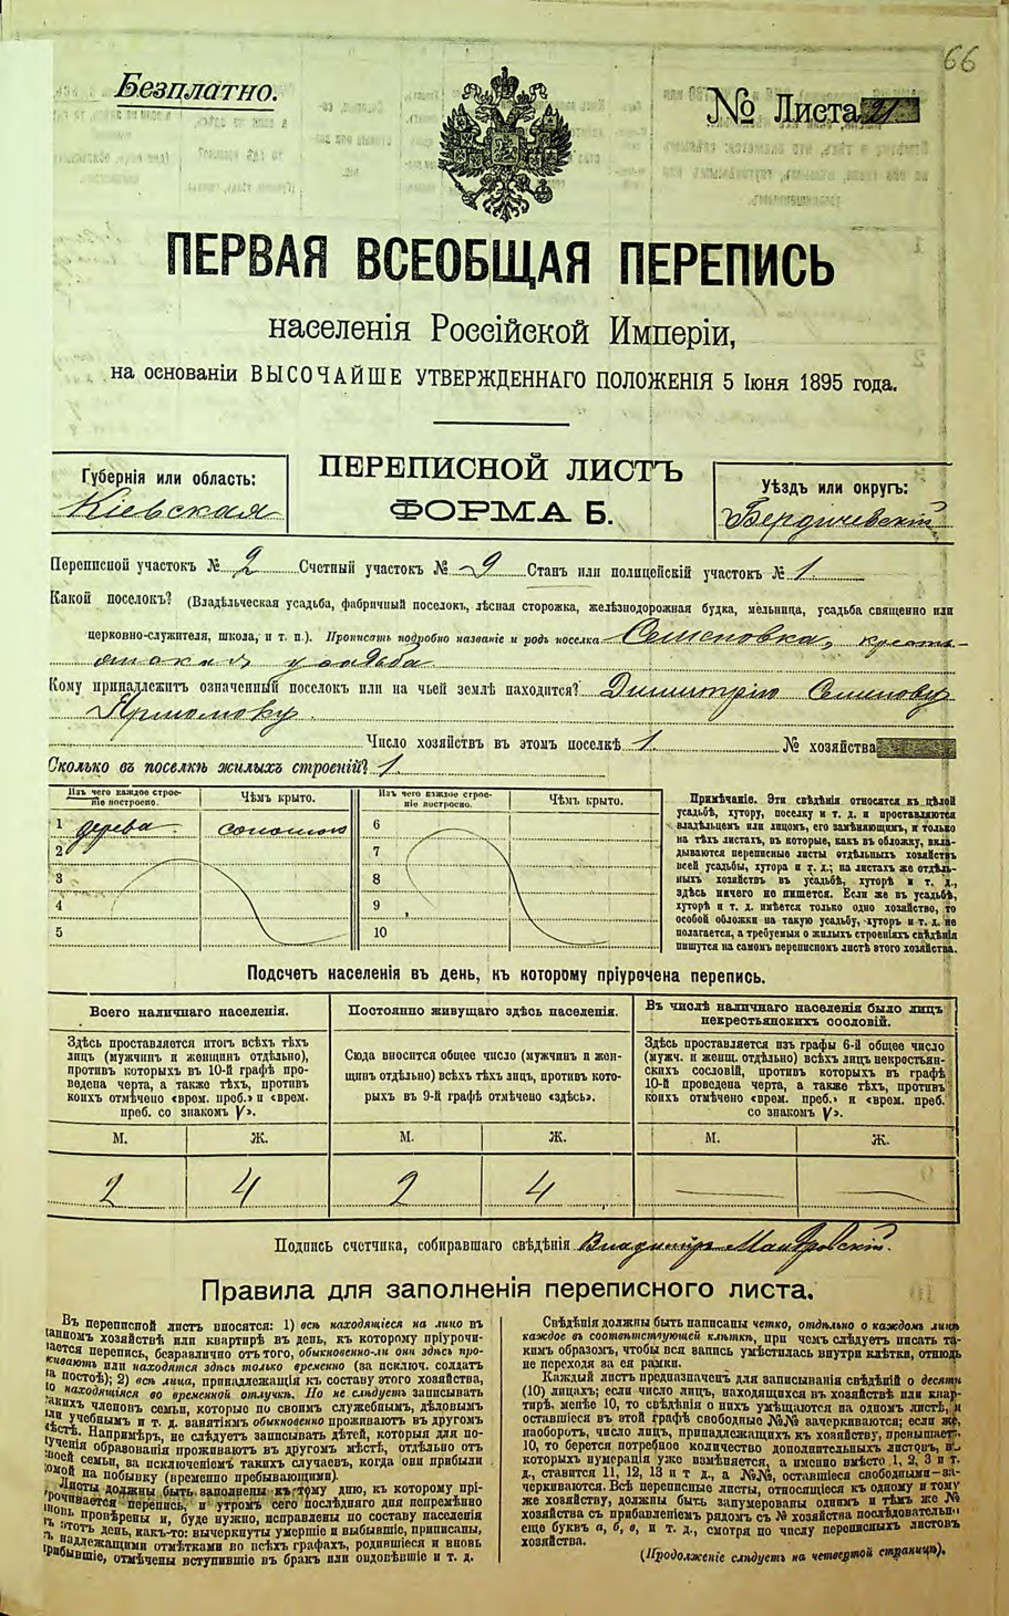 66
Безплатно.
№ Листа 21
ПЕРВАЯ ВСЕОБЩАЯ ПЕРЕПИСЬ
населенія Россійской Имперіи,
на основаніи ВЫСОЧАЙШЕ УТВЕРЖДЕННАГО ПОЛОЖЕНІЯ 5 Іюня 1895 года.
Губернія или область:
Кіевская
ПЕРЕПИСНОЙ ЛИСТЪ
ФОРМА Б.
Уѣздъ или округъ:
Бердичевскій
Переписной участокъ № 2 Счетный участокъ № 9 Станъ или полицейскій участокъ № 1.
Какой поселокъ? (Владѣльческая усадьба, фабричный поселокъ, лѣсная сторожка, желѣзнодорожная будка, мельница, усадьба священно или
церковно-служителя, школа, и т. п.). Прописать подробно названіе и родъ поселка Семеновка, кресть-
янская усадьба
Кому принадлежитъ означенный поселокъ или на чьей землѣ находится? Димитрію Семенову
Ярмолюку.
Число хозяйствъ въ этомъ поселкѣ 1. № хозяйства
Сколько въ поселкѣ жилыхъ строеній? 1.
Изъ чего каждое строе-
ніе построено.
Чѣмъ крыто.
Изъ чего каждое строе-
ніе построено.
Чѣмъ крыто.
1 дерева соломою
2
3
4
5
6
7
8
9
10
Примѣчаніе. Эти свѣдѣнія относятся къ цѣлой
усадьбѣ, хутору, поселку и т. д. и проставляются
владѣльцемъ или лицомъ, его замѣняющимъ, и только
на тѣхъ листахъ, въ которые, какъ въ обложку, вкла-
дываются переписные листы отдѣльныхъ хозяйствъ
всей усадьбы, хутора и т. д.; на листахъ же отдѣль-
ныхъ хозяйствъ въ усадьбѣ, хуторѣ и т. д.,
здѣсь ничего не пишется. Если же въ усадьбѣ,
хуторѣ и т. д. имѣется только одно хозяйство, то
особой обложки на такую усадьбу, хуторъ и т. д. не
полагается, а требуемыя о жилыхъ строеніяхъ свѣдѣнія
пишутся на самомъ переписномъ листѣ этого хозяйства.
Подсчетъ населенія въ день, къ которому пріурочена перепись.
Всего наличнаго населенія.
Здѣсь проставляется итогъ всѣхъ тѣхъ
лицъ (мужчинъ и женщинъ отдѣльно),
противъ которыхъ въ 10-й графѣ про-
ведена черта, а также тѣхъ, противъ
коихъ отмѣчено «врем. преб.» и «врем.
преб. со знакомъ V».
Постоянно живущаго здѣсь населенія.
Сюда вносится общее число (мужчинъ и жен-
щинъ отдѣльно) всѣхъ тѣхъ лицъ, противъ кото-
рыхъ въ 9-й графѣ отмѣчено «здѣсь».
Въ числѣ наличнаго населенія было лицъ
некрестьянскихъ сословій.
Здѣсь проставляется изъ графы 6-й общее число
(мужч. и женщ. отдѣльно) всѣхъ лицъ некрестьян-
скихъ сословій, противъ которыхъ въ графѣ
10-й проведена черта, а также тѣхъ, противъ
коихъ отмѣчено «врем. преб.» и «врем. преб.
со знакомъ V».
М. Ж. М. Ж. М. Ж.
2 4 2 4 — —
Подпись счетчика, собиравшаго свѣдѣнія Владиміръ
Правила для заполненія переписного листа.
Въ переписной листъ вносятся: 1) всѣ находящіеся на лицо въ
данномъ хозяйствѣ или квартирѣ въ день, къ которому пріурочи-
вается перепись, безразлично отъ того, обыкновенно-ли они здѣсь про-
живаютъ или находятся здѣсь только временно (за исключ. солдатъ
на постоѣ); 2) всѣ лица, принадлежащія къ составу этого хозяйства,
но находящіяся во временной отлучкѣ. Но не слѣдуетъ записывать
такихъ членовъ семьи, которые по своимъ служебнымъ, дѣловымъ
или учебнымъ и т. д. занятіямъ обыкновенно проживаютъ въ другомъ
мѣстѣ. Напримѣръ, не слѣдуетъ записывать дѣтей, которыя для по-
лученія образованія проживаютъ въ другомъ мѣстѣ, отдѣльно отъ
своей семьи, за исключеніемъ такихъ случаевъ, когда они прибыли
домой на побывку (временно пребывающими).
Листы должны быть заполнены къ тому дню, къ которому прі-
урочивается перепись, и утромъ сего послѣдняго дня непремѣнно
вновь провѣрены и, буде нужно, исправлены по составу населенія
въ этотъ день, какъ-то: вычеркнуты умершіе и выбывшіе, приписаны,
съ надлежащими отмѣтками во всѣхъ графахъ, родившіеся и вновь
прибывшіе, отмѣчены вступившіе въ бракъ или овдовѣвшіе и т. д.
Свѣдѣнія должны быть написаны четко, отдѣльно о каждомъ лицѣ
каждое въ соотвѣтствующей клѣткѣ, при чемъ слѣдуетъ писать та-
кимъ образомъ, чтобы вся запись умѣстилась внутри клѣтки, отнюдь
не переходя за ея рамки.
Каждый листъ предназначенъ для записыванія свѣдѣній о десяти
(10) лицахъ; если число лицъ, находящихся въ хозяйствѣ или квар-
тирѣ, менѣе 10, то свѣдѣнія о нихъ умѣщаются на одномъ листѣ, и
оставшіеся въ этой графѣ свободные №№ зачеркиваются; если же,
наоборотъ, число лицъ, принадлежащихъ къ хозяйству, превышаетъ
10, то берется потребное количество дополнительныхъ листовъ, въ
которыхъ нумерація уже измѣняется, а именно вмѣсто 1, 2, 3 и т.
д., ставится 11, 12, 13 и т д., а №№, оставшіеся свободными—за-
черкиваются. Всѣ переписные листы, относящіеся къ одному и тому
же хозяйству, должны быть занумерованы однимъ и тѣмъ же №
хозяйства съ прибавленіемъ рядомъ съ № хозяйства послѣдовательно
еще буквъ а, б, в, и т. д., смотря по числу переписныхъ листовъ
хозяйства.
(Продолженіе слѣдуетъ на четвертой страницѣ).